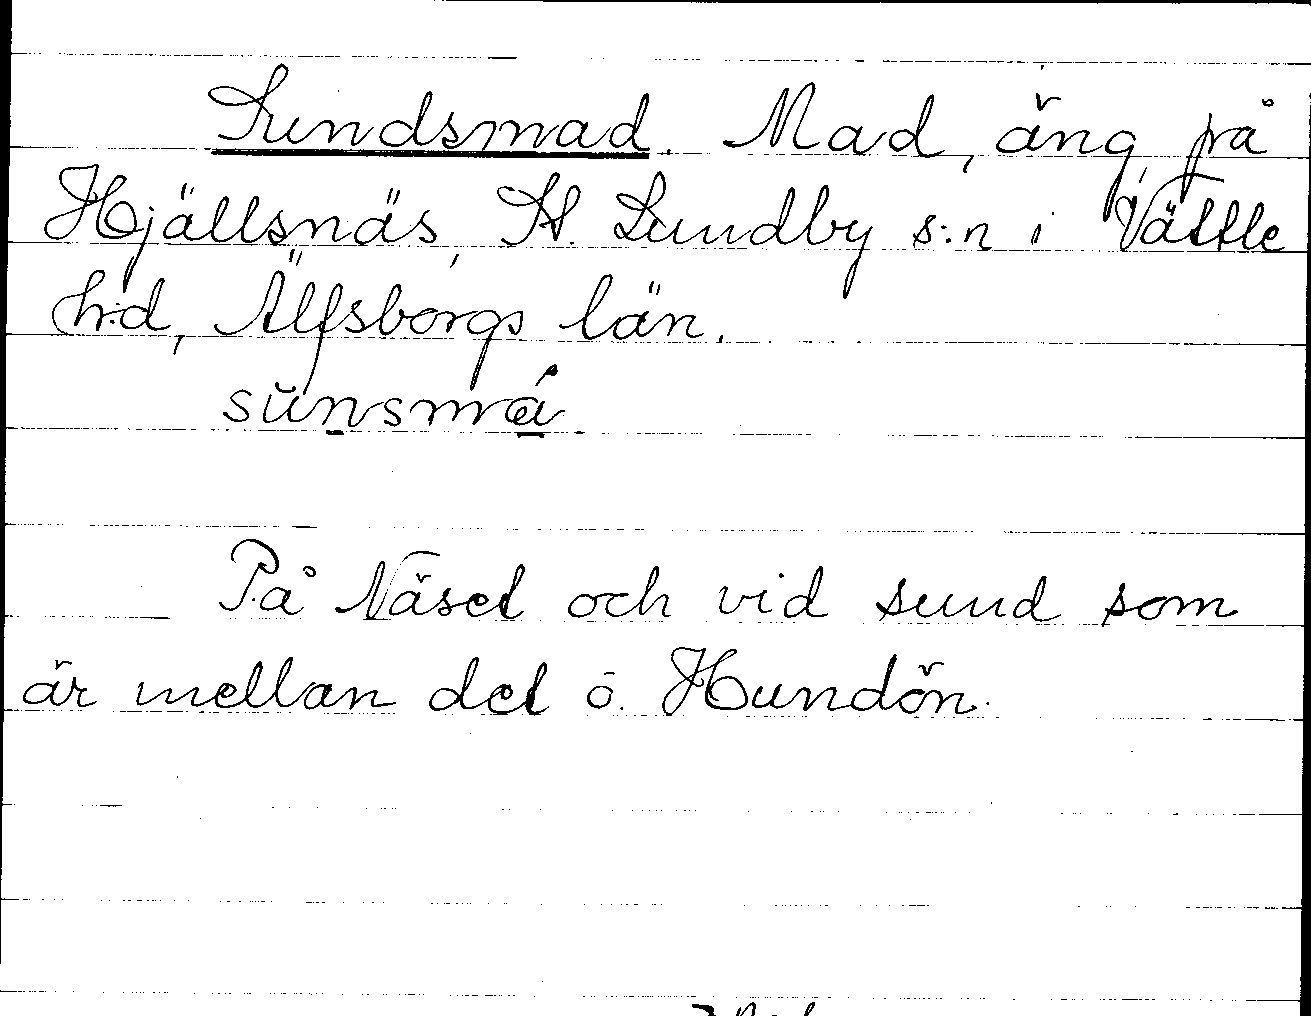 Sundsmad. Mad, äng på
Hjällsnäs, St. Lundby s:n i Vättle
h:d, Älfsborgs län.
På Näset och vid sund som
är mellan det o. Hundön.